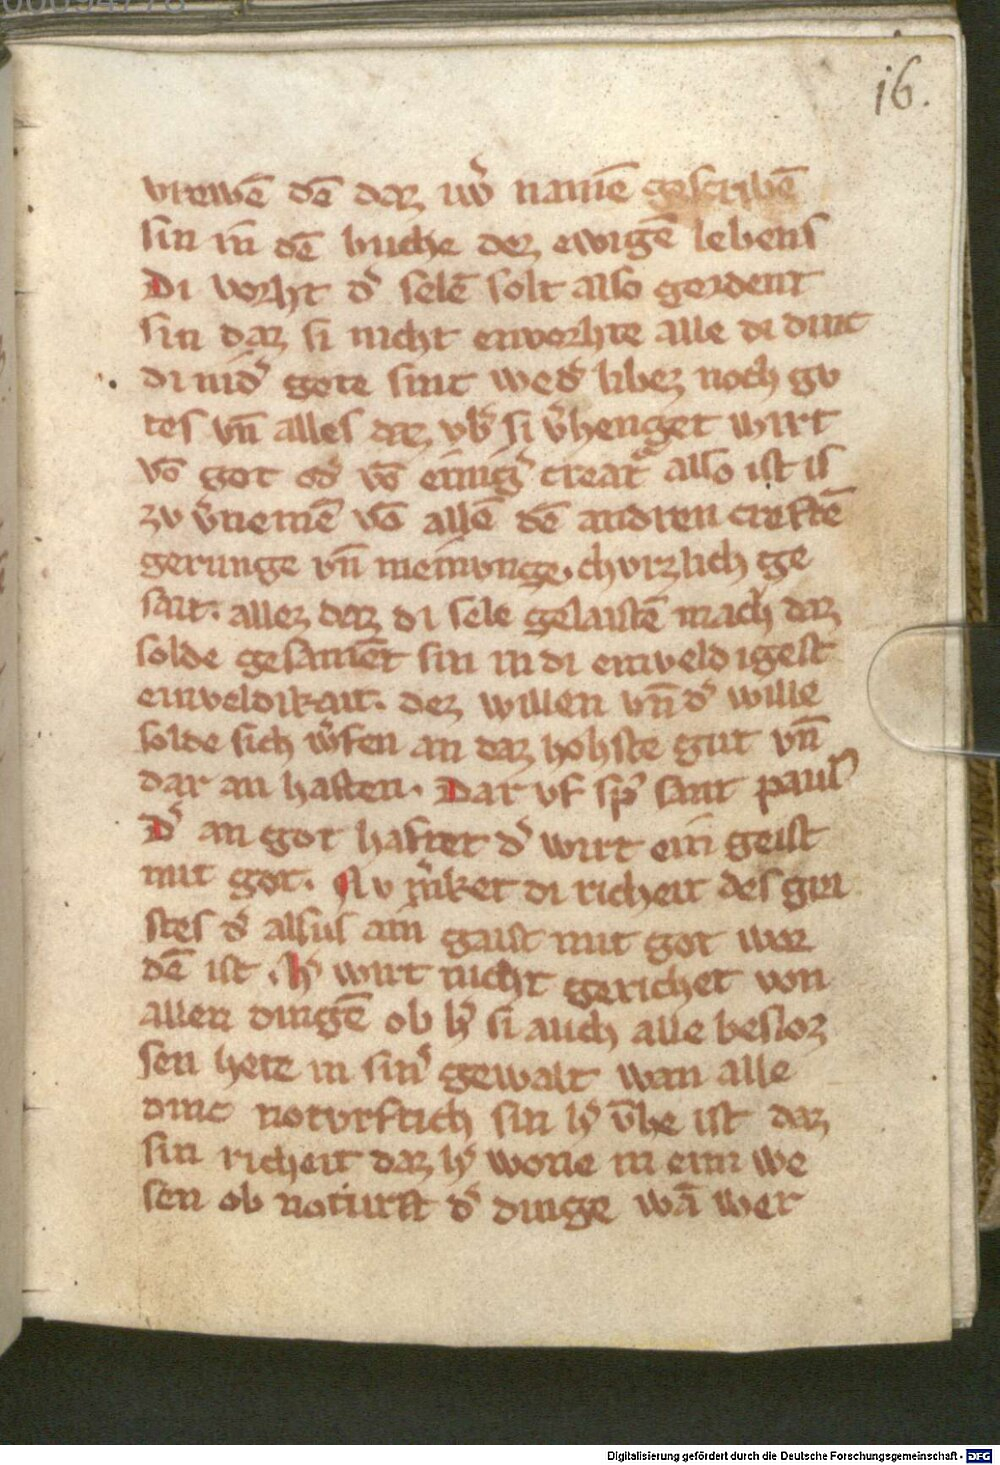 16.
vrewē dē daz iwˀ namē gescribē
sin in dē buche dez ewigē lebens
Di vorht dˀ selē solt also geordent
sin daz si nicht envorhte alle di dinc
di nidˀ gote sint wedˀ libez noch gv
tes vn̄ alles daz vbˀ si vˀhenget wirt
vō got odˀ vō einigˀ creatˀ also ist is
zv vˀnemē vō allē dē andren creftē
gerunge vn̄ meinvnge. chvrzlich ge
sait. allez daz di sele gelaistē mach daz
solde gesament sin in di einveldigest
einveldikait. dez willen vn̄ dˀ wille
solde sich wˀfen an daz hohste gut vn̄
dar an haften. Dar vf spˀ sant paulˀ
Dˀ an got haftet dˀ wirt ein geist
mit got. Nv mˀket di richeit des gei
stes dˀ alsus ain gaist mit got wor
dē ist. Hˀ wirt nicht gerichet von
allen dingē ob hˀ si auch alle besloz
sen hete in sinˀ gewalt wan alle
dinc notvrftich sin hˀ v̄he ist daz
sin richeit daz hˀ wone in eim we
sen ob noturft dˀ dinge wā wer
Digitalisierung gefördert durch die Deutsche Forschungsgemeinschaft - DFG